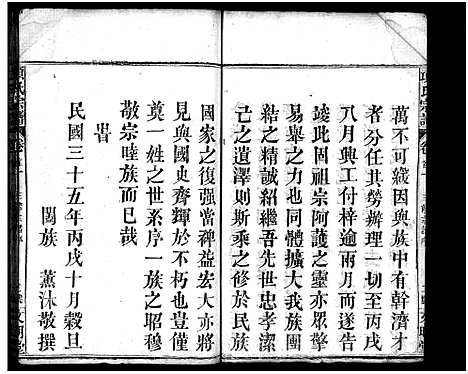 萬不可緩爰因與族中有幹濟才
者分任其勞辦理一切至丙戌
八月興工付梓逾兩月而克
竣此固祖宗呵護之靈亦眾擎
易舉之力也同體擴大我族團
結之精誠紹繼吾先世孝潔
己之遺澤則斯乘之修於
國家之復强當裨益宏大亦將
見與國史齊輝於不朽也豈僅
奠一姓之世系序一族之昭穆
敬宗睦族而已哉
旹
民國三十五年丙戌十月穀旦
闔族 薰沐敬撰
項氏宗譜